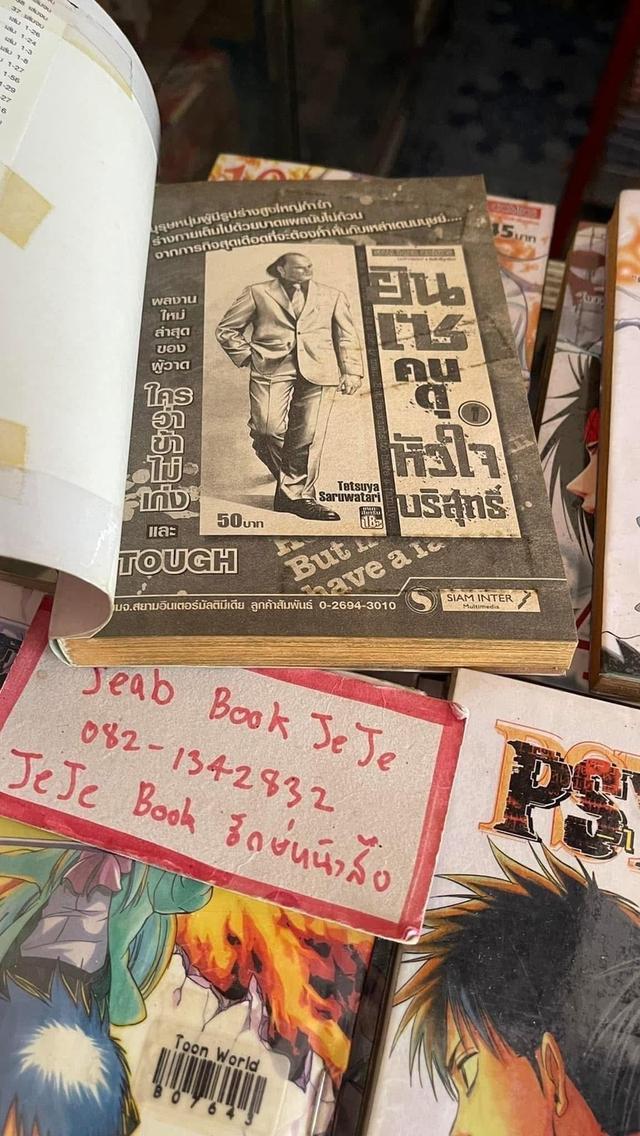 เล่ม 1-26
เล่ม 1-24
เล่ม 1-3
เล่ม 1-8
45บาท
บุรุษหนุ่มผู้มีรูปร่างสูงใหญ่กำยำ
ร่างกายเต็มไปด้วยบาดแผลนับไม่ถ้วน
จากภารกิจสุดเดือดที่จะต้องค้ำสั่นกับเหล่าเดนมนุษย์....
ผลงาน
ใหม่
ล่าสุด
ของ
ผู้วาด
ใคร
ว่า
ข้า
ไม่
เก่ง
และ
TOUGH
ยิน
เซ
คน
ดุ
1
หัวใจ
บริสุทธิ์
Tetsuya
Saruwatari
50บาท
18+
But
have a
สยามอินเตอร์มัลติมีเดีย ลูกค้าสัมพันธ์ 0-2694-3010
SIAM INTER
Multimedia
Jeab Book JeJe
082-1342832
JeJe Book
PS
Toon World
B07643